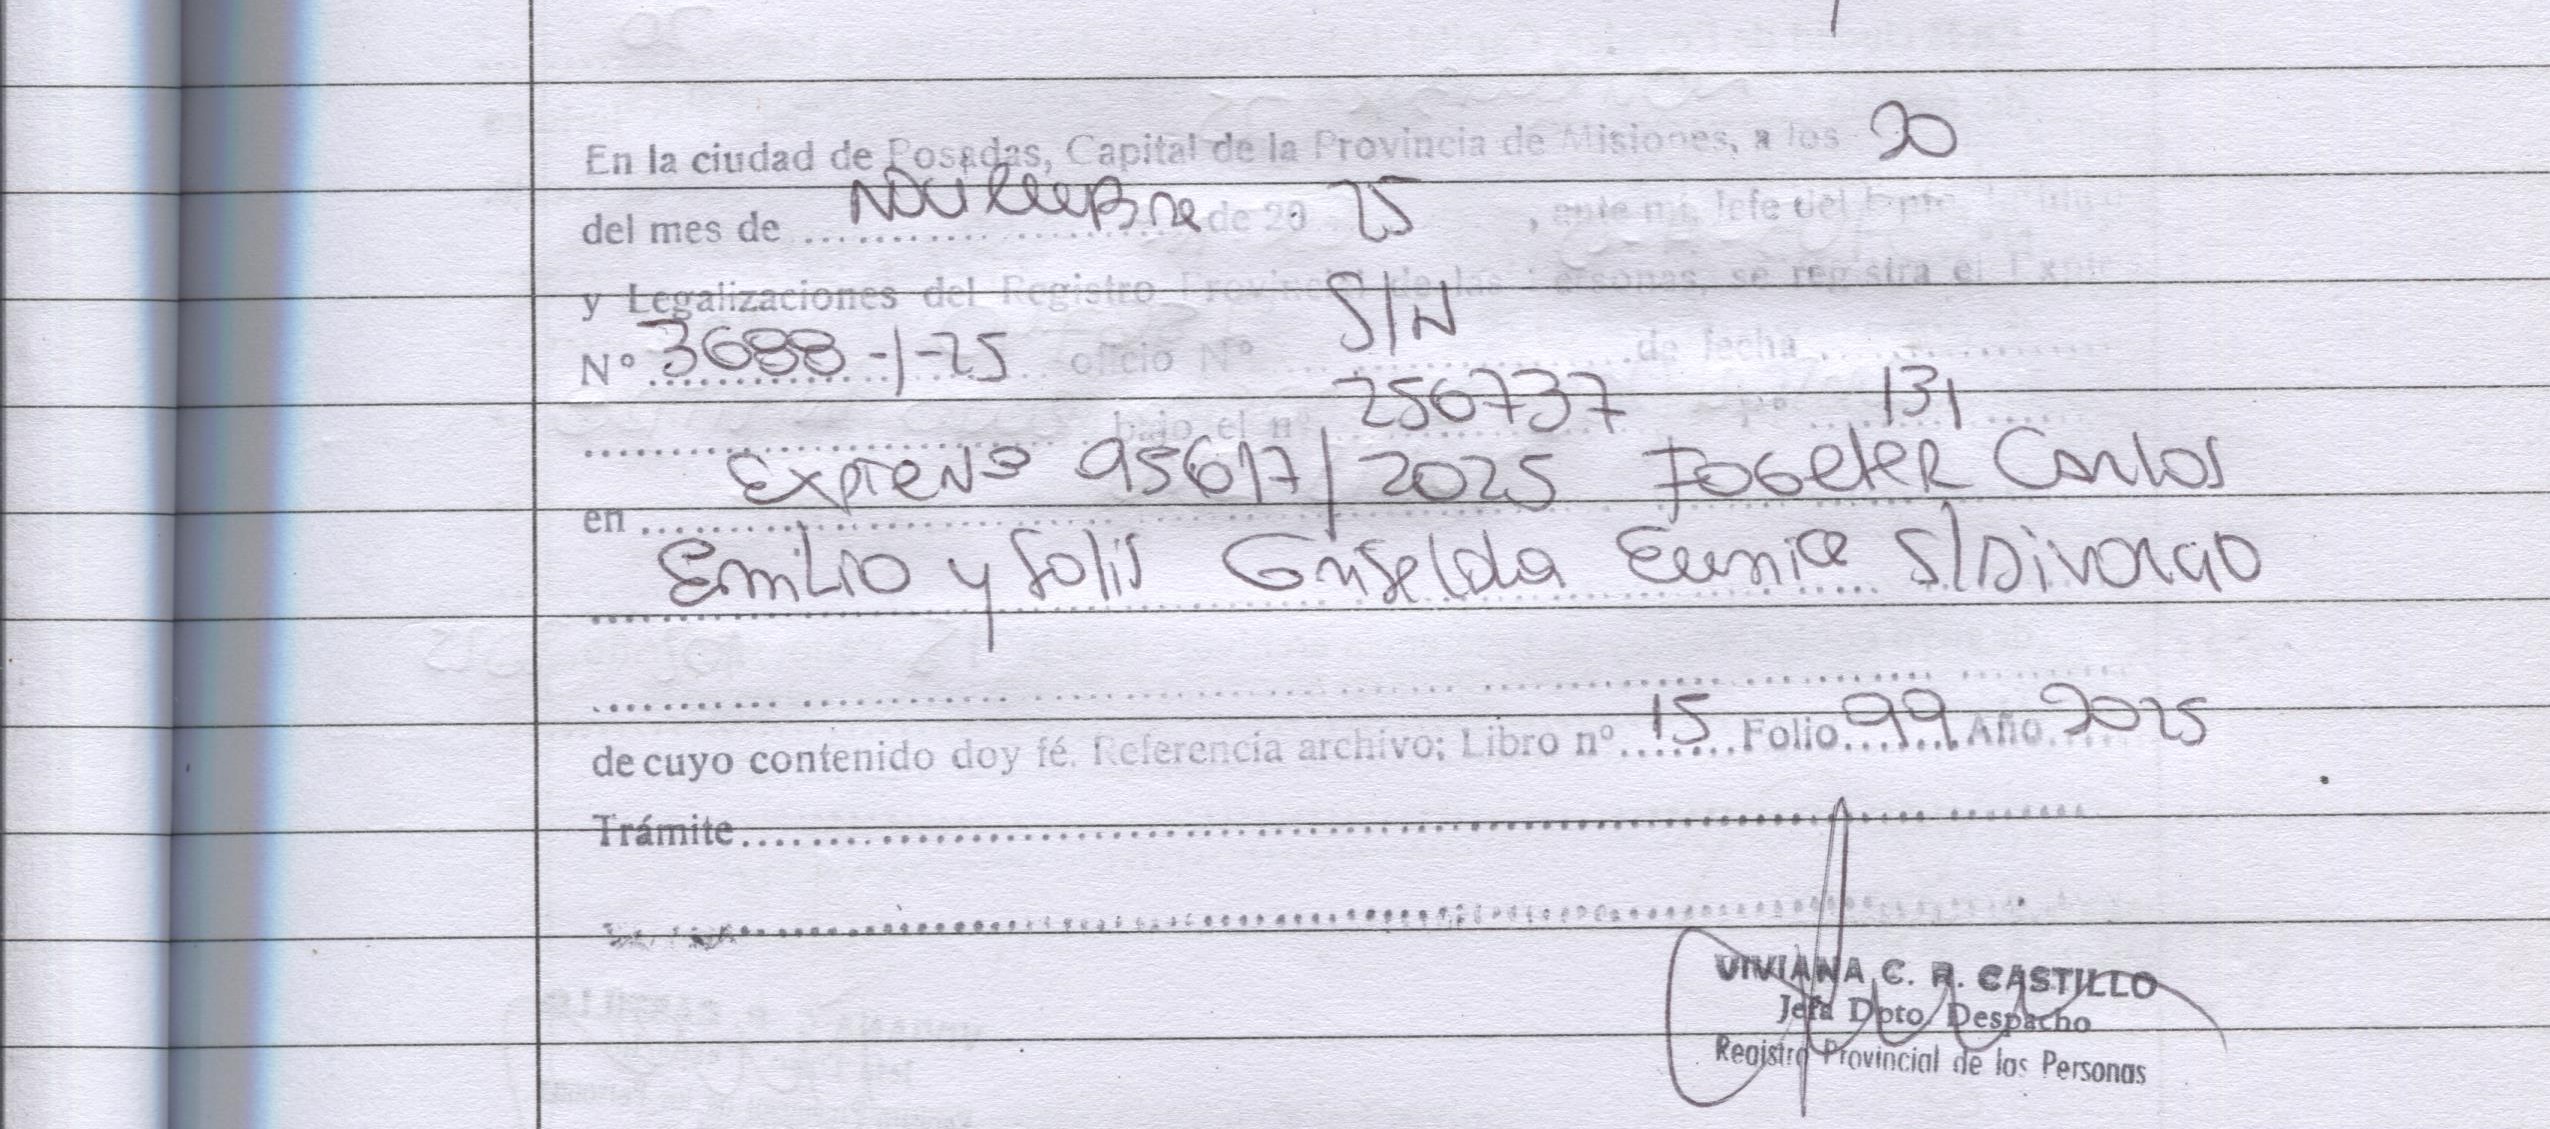 En la ciudad de Posadas, Capital de la Provincia de Misiones, a los 20
del mes de Noviembre de 20 25, ante mi, Jefe del Dpto.
y Legalizaciones del Registro Provincial de las Personas, se registra el Expte
Nº 3688-1-25 oficio Nº S/N de fecha
bajo el nº 256737 Fº 131
en Expte Nº 95617/2025 Fogeler Carlos
Emilio y Solis Griselda Eunice S/Divorcio
de cuyo contenido doy fé. Referencia archivo; Libro nº 15 Folio 99 Año 2025
Trámite
VIVIANA C. R. CASTILLO
Jefa Dpto Despacho
Registro Provincial de las Personas